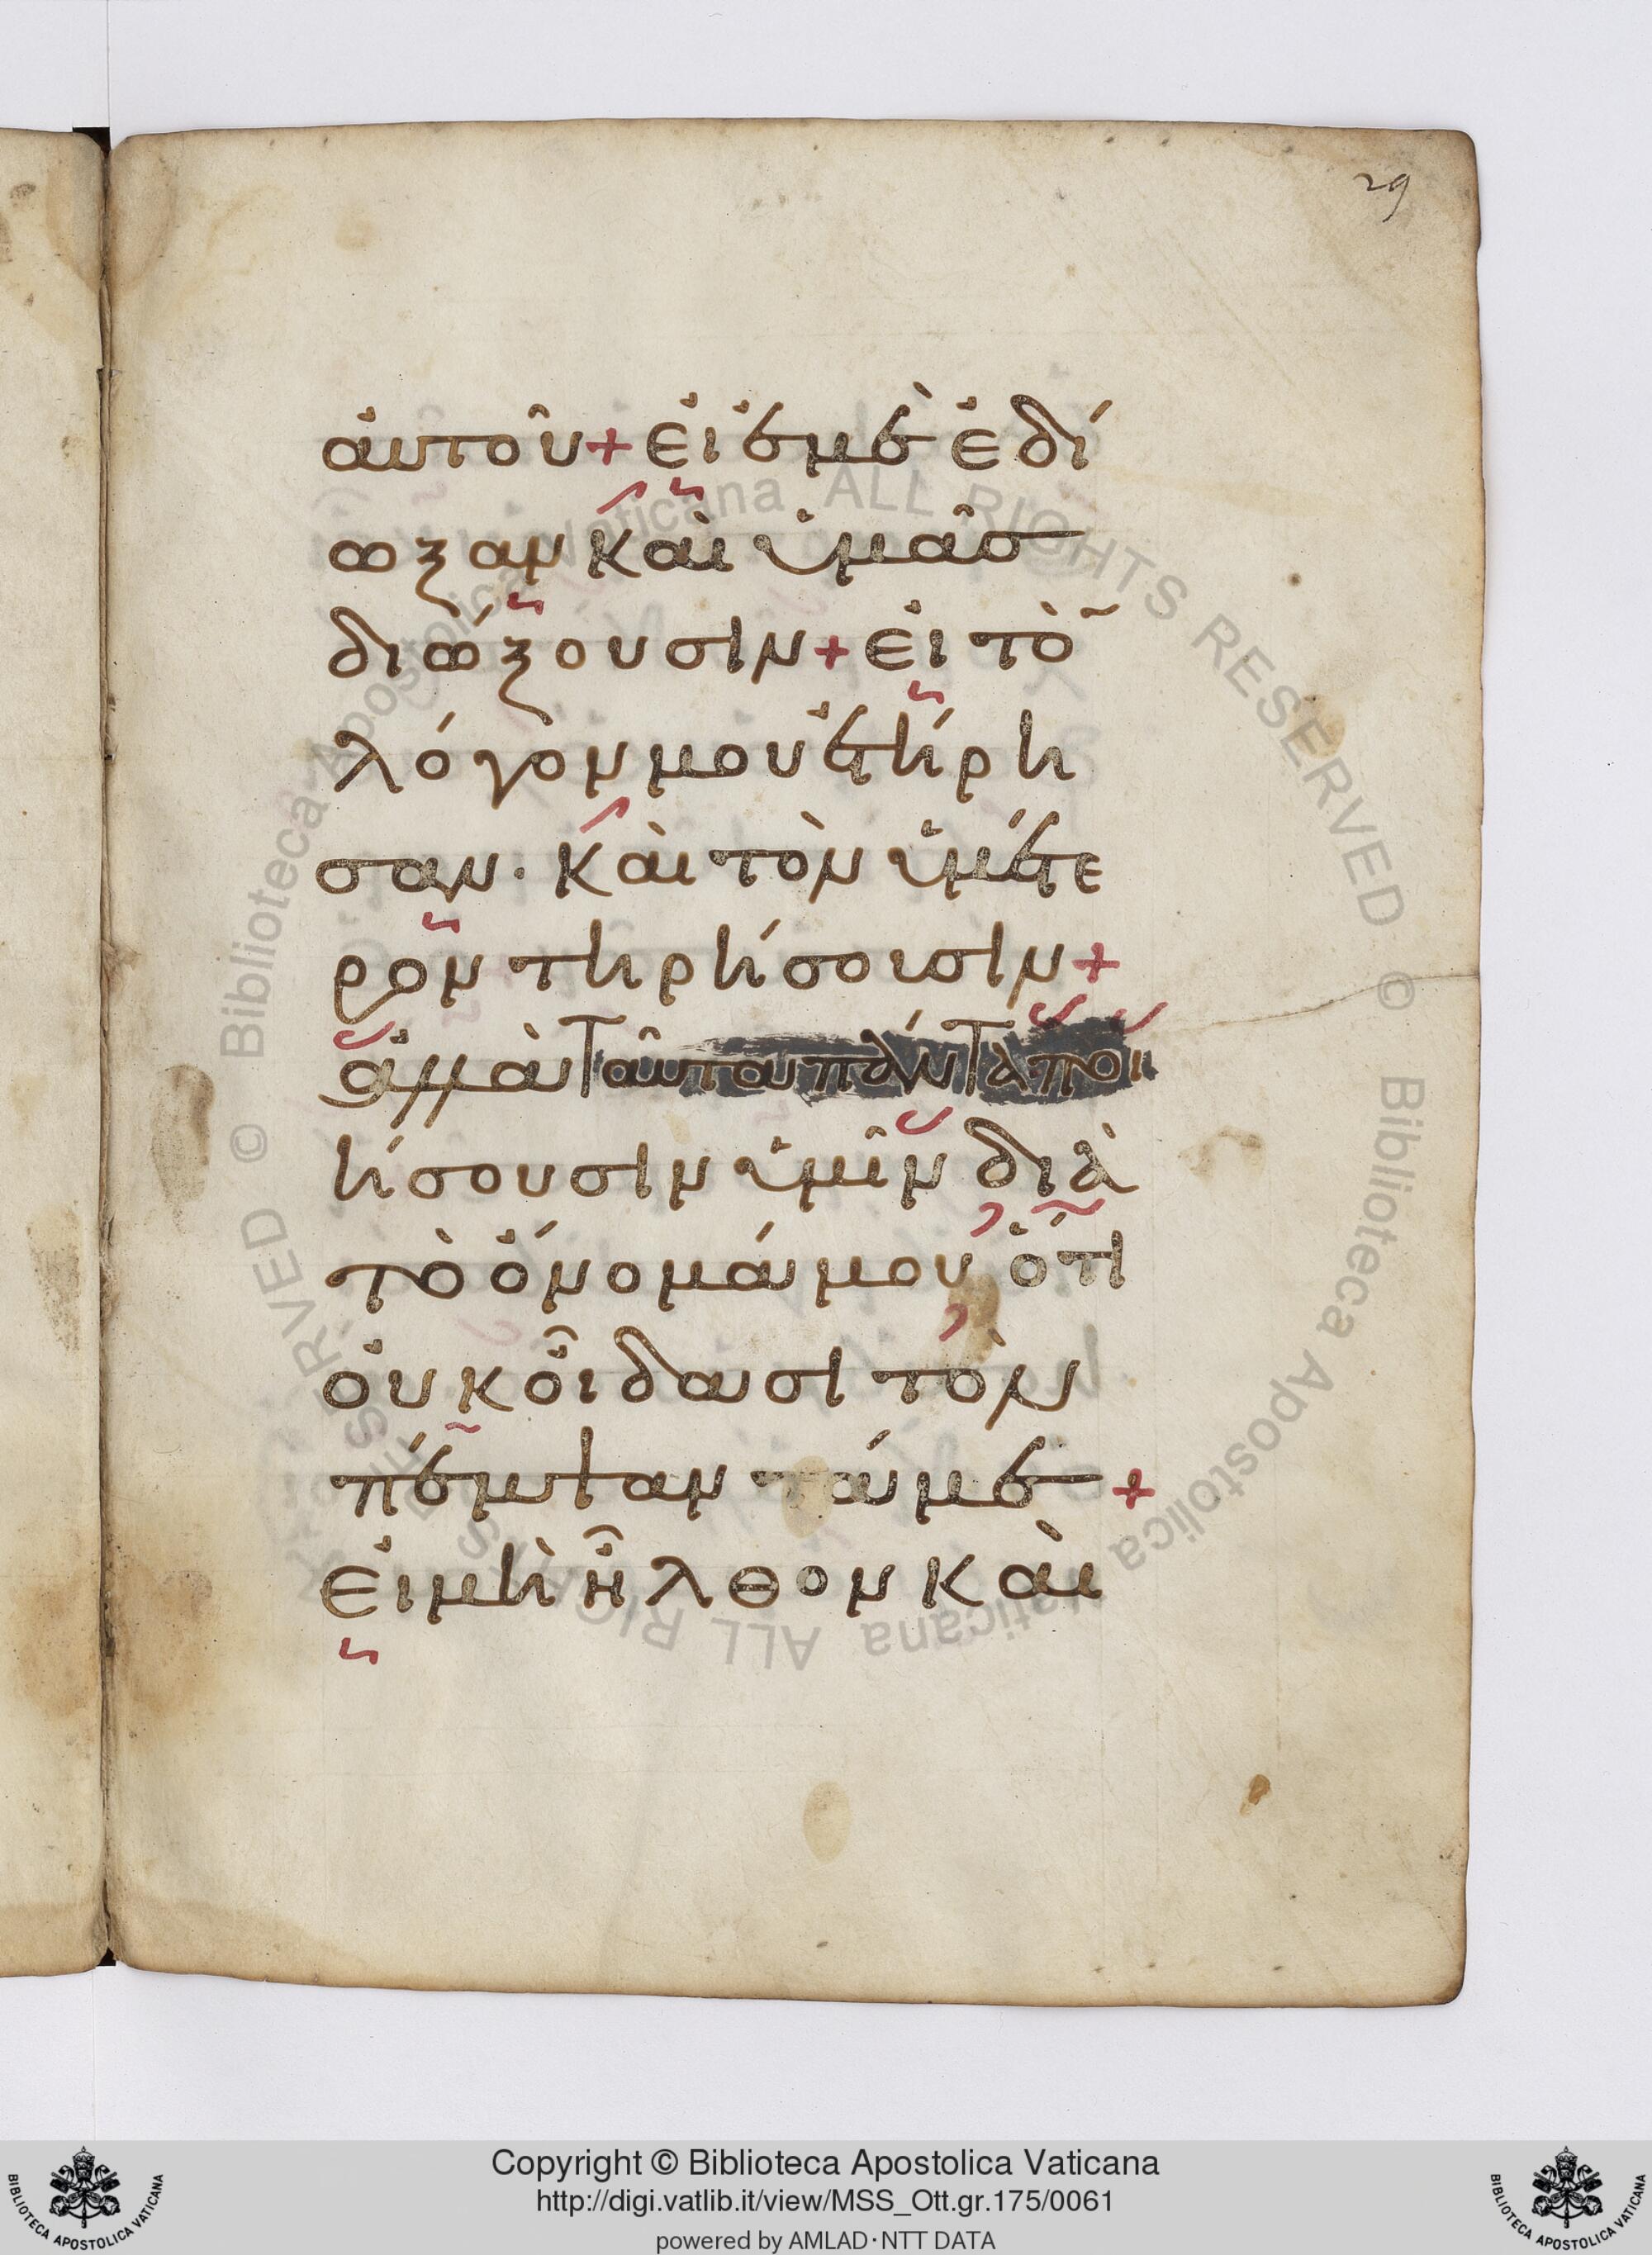 29
αὐτοῦ + εἰ ἐμὲ ἐδί
ωξαν καὶ ὑμᾶσ
διώξουσιν + εἰ τὸ̃
λόγον μου ἐτήρη
σαν · καὶ τὸν ὑμέτε
ρον τηρήσοισιν +
ἀλλὰ ταῦτα πάντα ποι
ήσουσιν ὑμῖν διὰ
τὸ ὄνομά μου, ὅτι
οὐκ οἶδασι τὸν
πέμψαντά με +
εἰ μὴ ἦλθον καὶ
© Biblioteca Apostolica Vaticana ALL RIGHTS RESERVED © Biblioteca Apostolica Vaticana ALL RIGHTS RESERVED
Copyright © Biblioteca Apostolica Vaticana
http://digi.vatlib.it/view/MSS_Ott.gr.175/0061
powered by AMLAD·NTT DATA
BIBLIOTECA APOSTOLICA VATICANA
BIBLIOTECA APOSTOLICA VATICANA